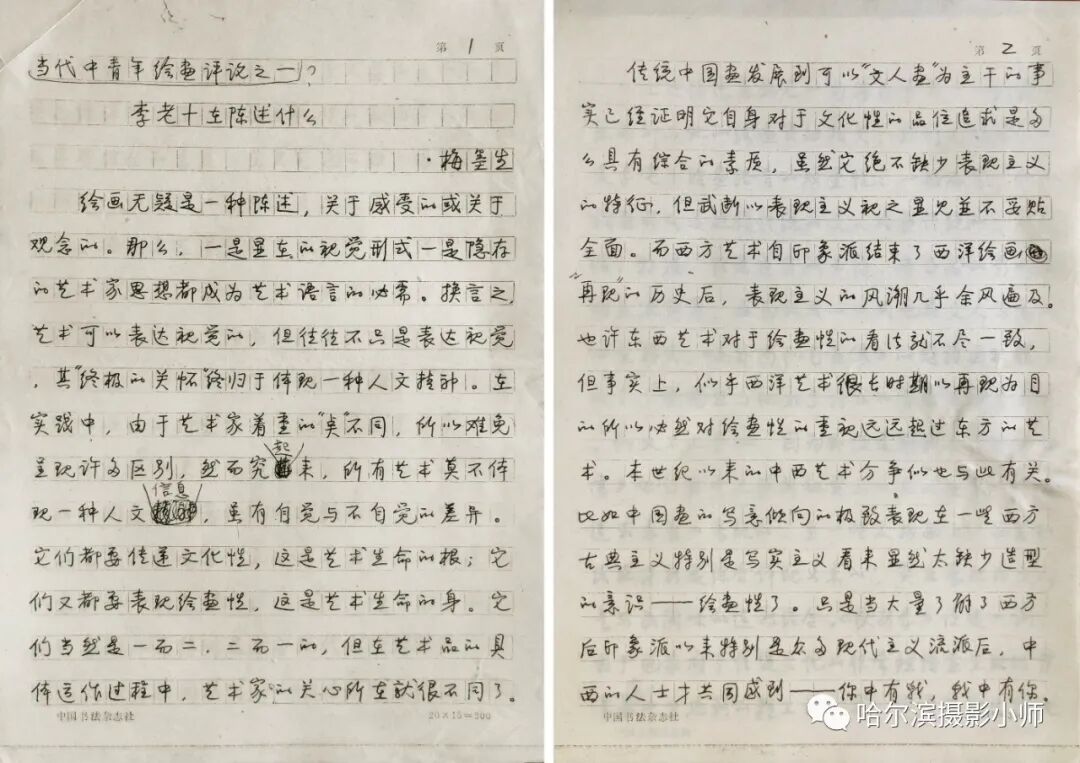 第 1 页
当代中青年绘画评论之一：
李老十在陈述什么
·梅墨生
绘画无疑是一种陈述，关于感受的或关于
观念的。那么，一是显在的视觉形式一是隐存
的艺术家思想都成为艺术语言的必需。换言之，
艺术可以表达视觉的，但往往不只是表达视觉
，其"终极的关怀"终归于体现一种人文精神。在
实践中，由于艺术家着重的"点"不同，所以难免
呈现许多区别，然而究起来，所有艺术莫不体
现一种人文信息，虽有自觉与不自觉的差异。
它们都要传递文化性，这是艺术生命的根；它
们又都要表现绘画性，这是艺术生命的身。它
们当然是一而二，二而一的，但在艺术品的具
体运作过程中，艺术家的关心所在就很不同了。
中国书法杂志社 20×15=300
第 2 页
传统中国画发展到可以"文人画"为主干的事
实已经证明它自身对于文化性的品位追求是多
么具有综合的素质，虽然它绝不缺少表现主义
的特征，但武断以表现主义视之显见并不妥贴
全面。而西方艺术自印象派结束了西洋绘画
"再现"的历史后，表现主义的风潮几乎余风遍及。
也许东西艺术对于绘画性的看法就不尽一致，
但事实上，似乎西洋艺术很长时期以再现为目
的所以必然对绘画性的重视远远超过东方的艺
术。本世纪以来的中西艺术分争似也与此有关。
比如中国画的写意倾向的极致表现在一些西方
古典主义特别是写实主义看来显然太缺少造型
的意识——绘画性了。只是当大量了解了西方
后印象派以来特别是众多现代主义流派后，中
西的人士才共同感到——你中有我，我中有你。
中国书法杂志社
哈尔滨摄影小师